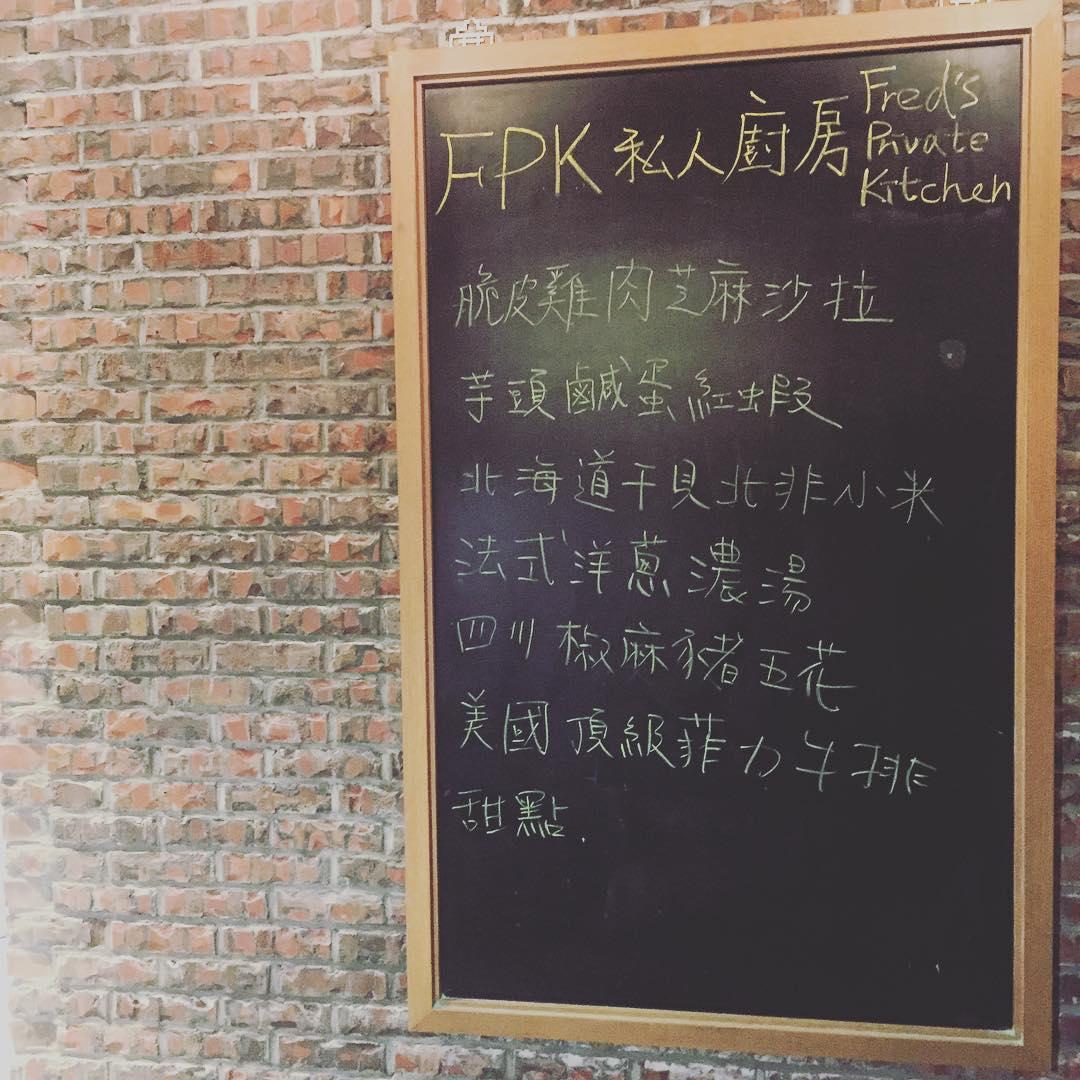 FPK 私人廚房 Fred's
Private
Kitchen
脆皮雞肉芝麻沙拉
芋頭鹹蛋紅蝦
北海道干貝北非小米
法式洋蔥濃湯
四川椒麻豬五花
美國頂級菲力牛排
甜點.